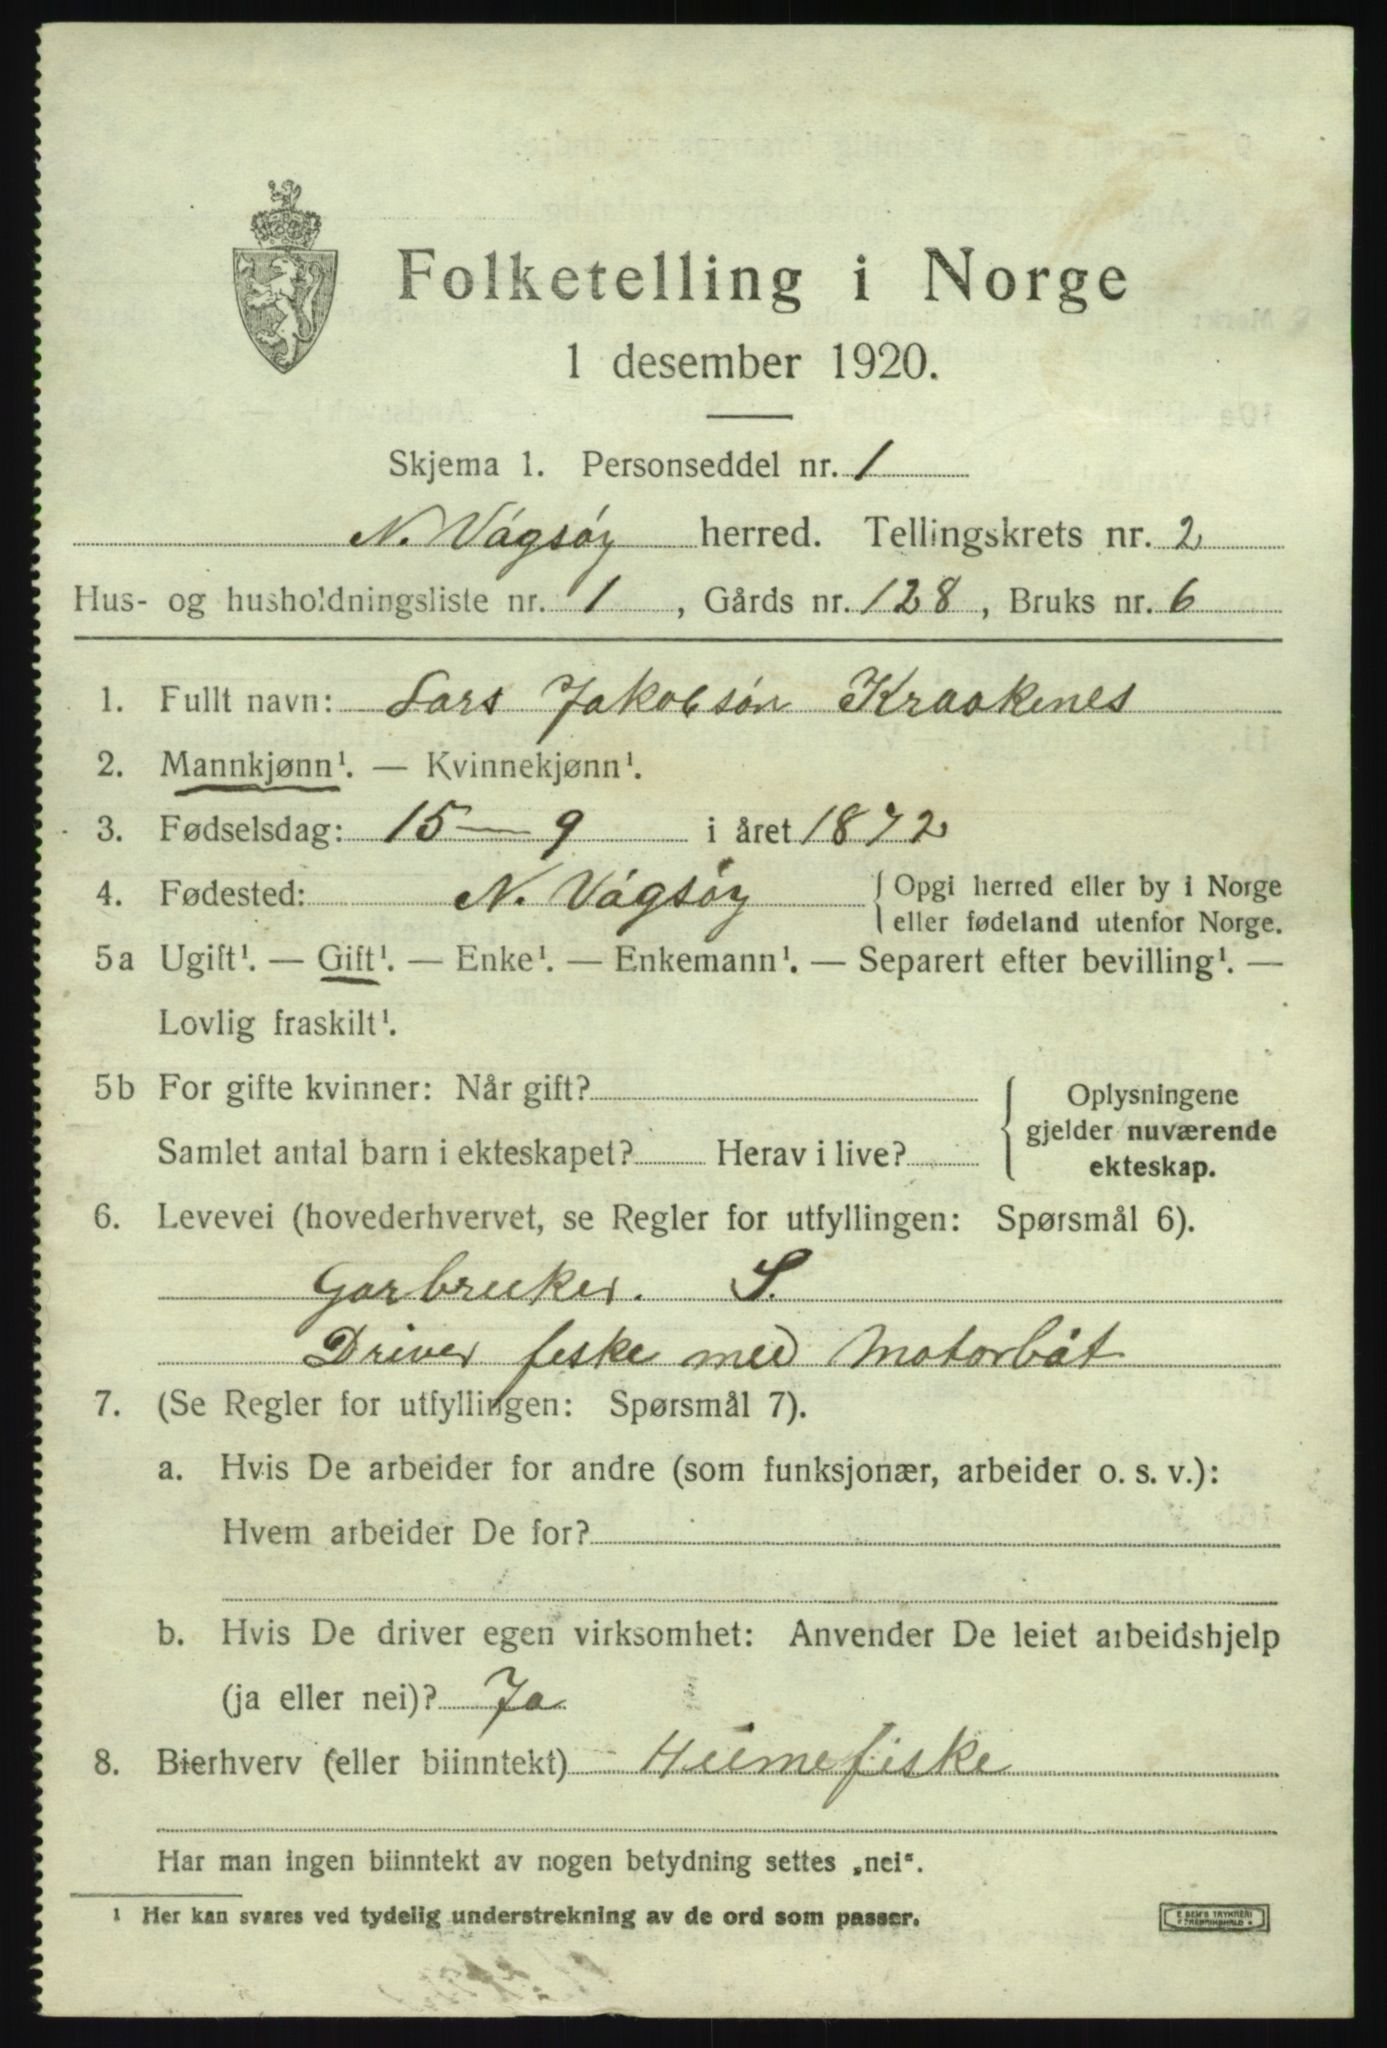 Folketelling i Norge
1 desember 1920.
Skjema 1. Personseddel nr. 1
N. Vågsøy herred. Tellingskrets nr. 2
Hus- og husholdningsliste nr. 1, Gårds nr. 128, Bruks nr. 6
1. Fullt navn: Lars Jakobsøn Kraakenes
2. Mannkjønn¹. — Kvinnekjønn¹.
3. Fødselsdag: 15 — 9 i året 1872
4. Fødested: N. Vågsøy {Opgi herred eller by i Norge
eller fødeland utenfor Norge.
5a Ugift¹. — Gift¹. — Enke¹. — Enkemann¹. — Separert efter bevilling¹. —
Lovlig fraskilt¹.
5b For gifte kvinner: Når gift?
Samlet antal barn i ekteskapet? Herav i live?
{Oplysningene
gjelder nuværende
ekteskap.
6. Levevei (hovederhvervet, se Regler for utfyllingen: Spørsmål 6).
Garbruker. S.
Driver feske med Motorbåt
7. (Se Regler for utfyllingen: Spørsmål 7).
a. Hvis De arbeider for andre (som funksjonær, arbeider o. s. v.):
Hvem arbeider De for?
b. Hvis De driver egen virksomhet: Anvender De leiet arbeidshjelp
(ja eller nei)? Ja
8. Bierhverv (eller biinntekt) Heimefiske
Har man ingen biinntekt av nogen betydning settes „nei“.
¹ Her kan svares ved tydelig understrekning av de ord som passer.